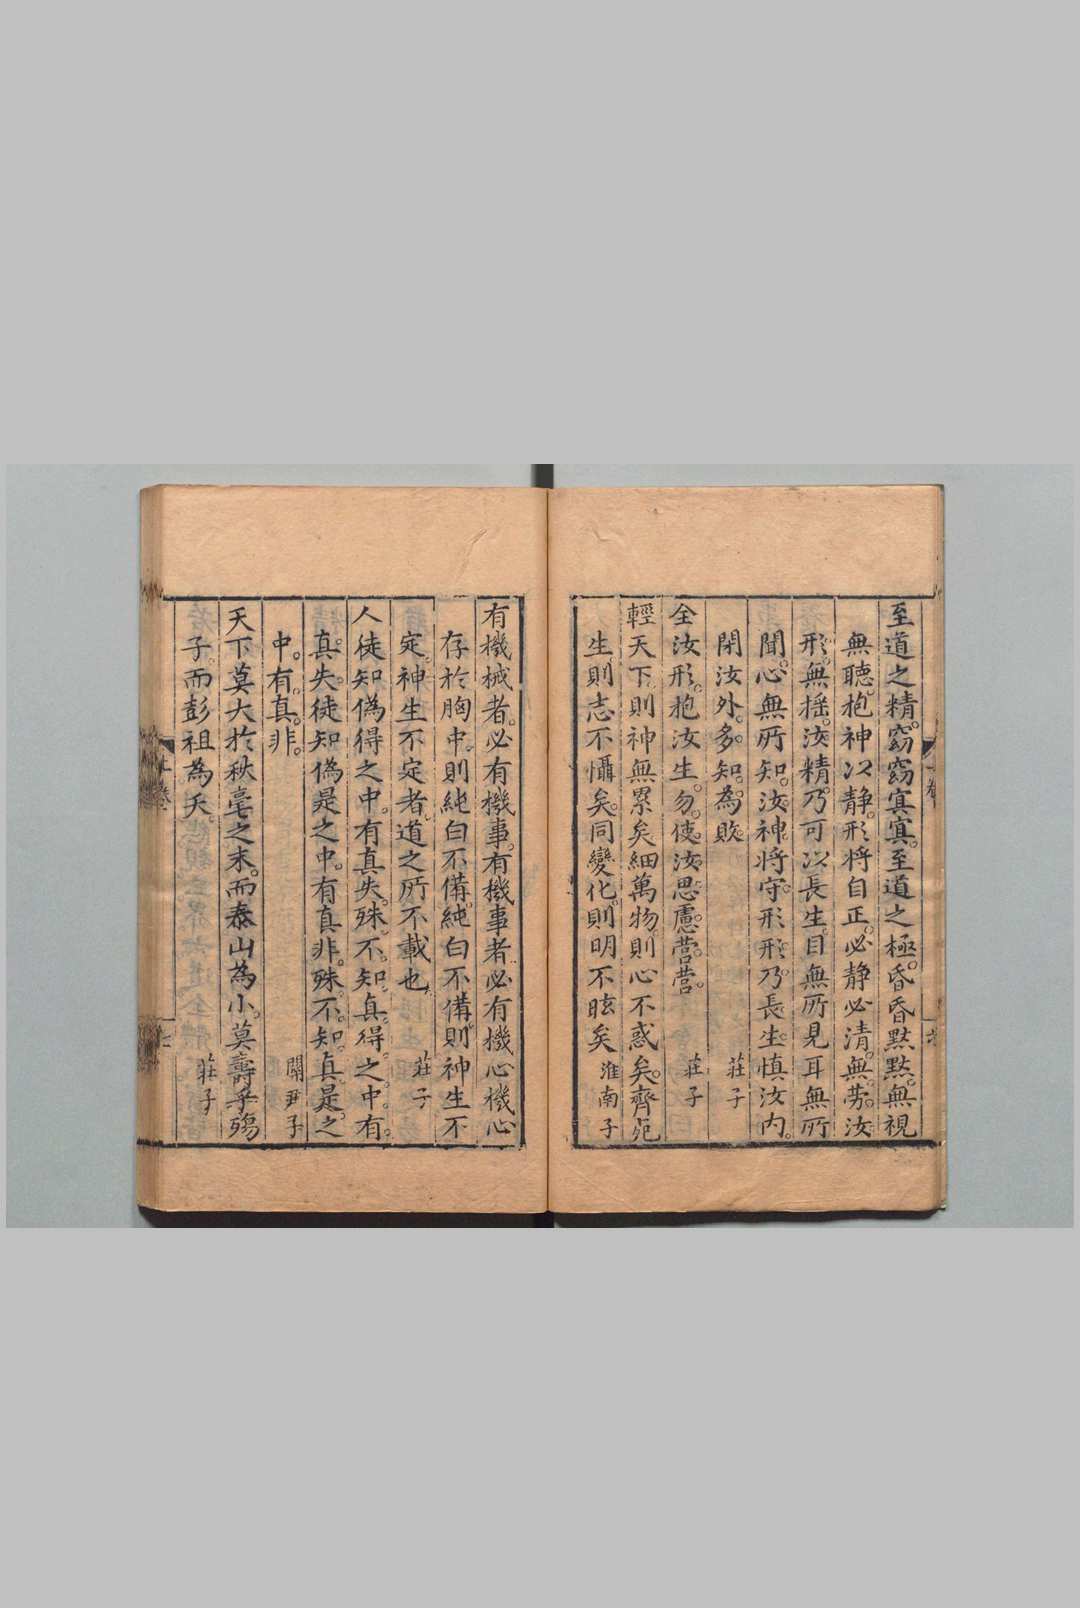 至道之精窈窈冥冥至道之極昏昏默默無視
無聽抱神以靜形將自正必靜必清無勞汝
形無摇汝精乃可以長生目無所見耳無所
聞心無所知汝神將守形形乃長生慎汝内
閉汝外多知為敗 莊子
全汝形抱汝生勿使汝思慮营营 莊子
輕天下則神無累矣細萬物則心不惑矣齊死
生則志不懾矣同變化則明不眩矣 淮南子
有機械者必有機事有機事者必有機心機心
存於胸中則純白不備純白不備則神生不
定神生不定者道之所不載也 莊子
人徒知偽得之中有真失殊不知真得之中有
真失徒知偽是之中有真非殊不知真是之
中有真非 關尹子
天下莫大於秋毫之末而泰山為小莫壽乎殤
子而彭祖為夭 莊子